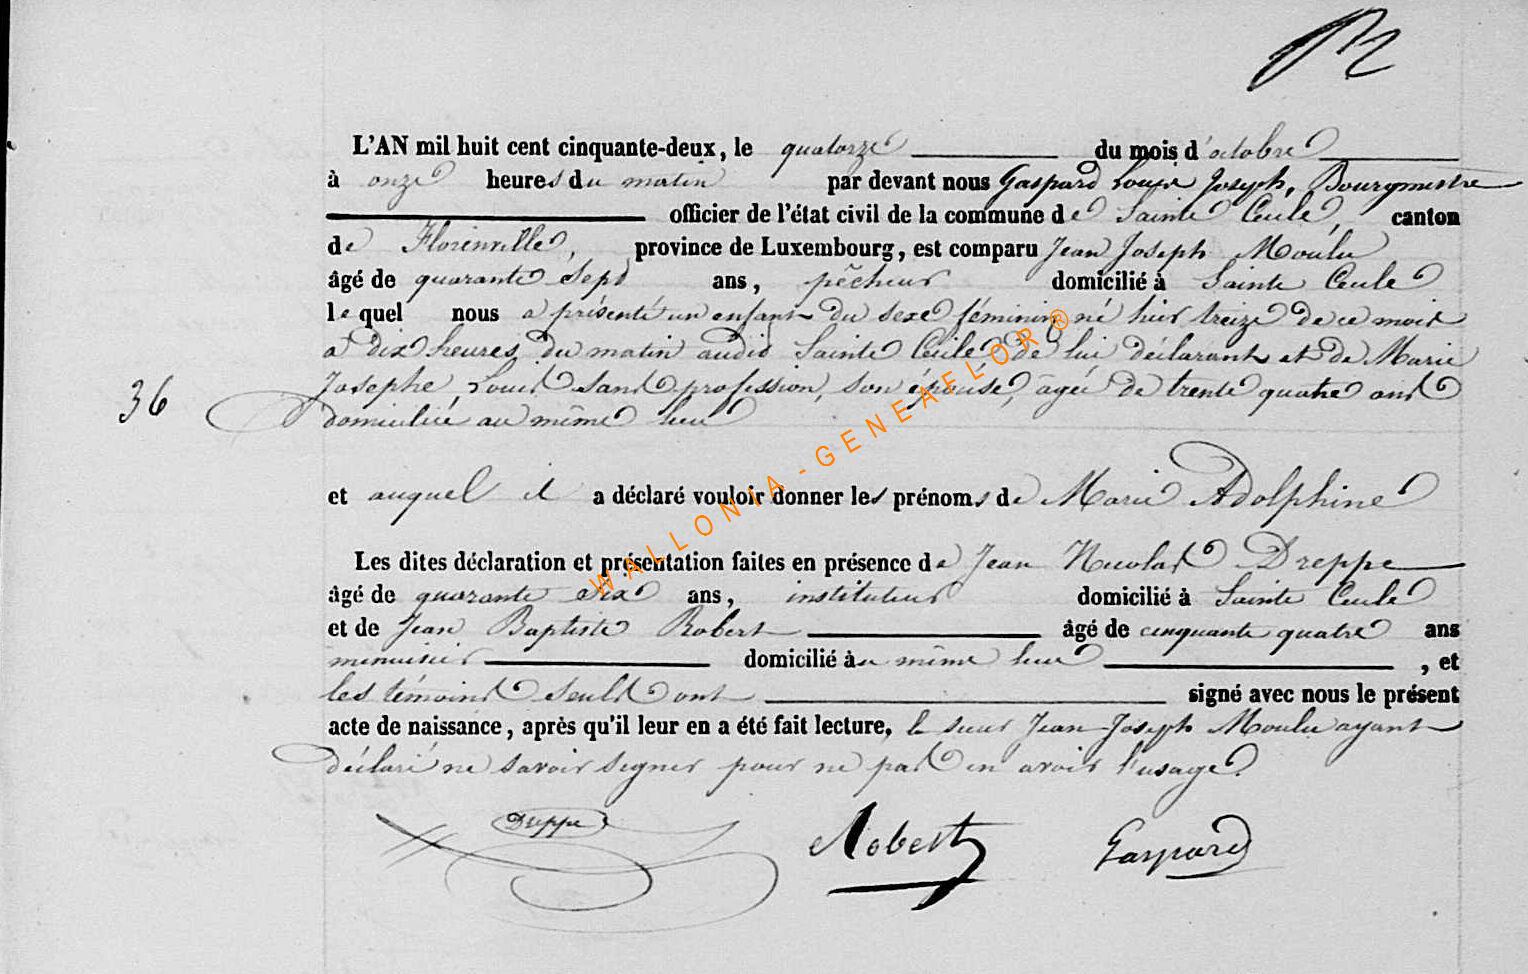 L'AN mil huit cent cinquante-deux, le quatorze du mois d'octobre
à onze heures du matin par devant nous Gaspard Louis Joseph, Bourgmestre
officier de l'état civil de la commune de Sainte Cecile, canton
de Florenville, province de Luxembourg, est comparu Jean Joseph Moulu
âgé de quarante sept ans, pêcheur domicilié à Sainte Cecile
lequel nous a présenté un enfant du sexe féminin né hier treize de ce mois
à dix heures du matin audit Sainte Cécile de lui déclarant et de Marie
36 Josephe, Louis sans profession, son épouse, âgée de trente quatre ans
domiciliée au même lieu
et auquel il a déclaré vouloir donner les prénoms de Marie Adolphine
Les dites déclaration et présentation faites en présence de Jean Nicolas Dreppe
âgé de quarante six ans, instituteur domicilié à Sainte Cecile
et de Jean Baptiste Robert âgé de cinquante quatre ans
menuisier domicilié au même lieu , et
les témoins seuls ont signé avec nous le présent
acte de naissance, après qu'il leur en a été fait lecture, le sieur Jean Joseph Moulu ayant
déclaré ne savoir signer pour ne pas en avoir l'usage.
Dreppe Robert Gaspard
WALLONIA-GENEAFLOR®